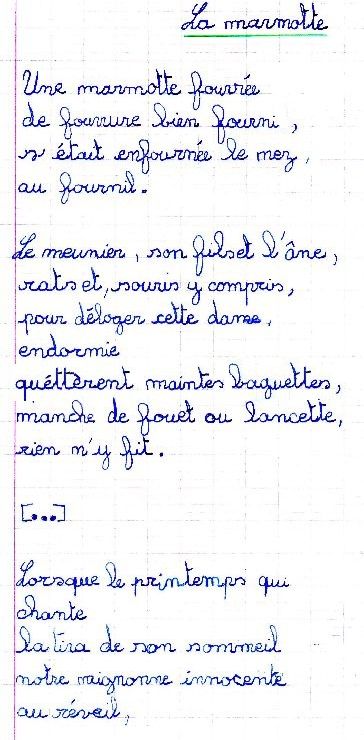 La marmotte
Une marmotte fourrée
de fourrure bien fourni,
s'était enfournée le nez,
au fournil.
Le meunier, son fils et l'âne,
rats et, souris y compris,
pour déloger cette dame,
endormie
quéttèrent maintes baguettes,
manche de fouet ou lancette,
rien n'y fit.
[...]
Lorsque le printemps qui
chante
la tira de son sommeil
notre mignonne innocente
au réveil,